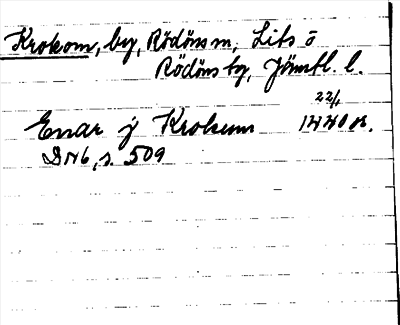 Krokom, by, Rödöns sn, Lits o
Rödöns tg, Jämtl. l.
22/1
Enar j Krokum 1440 A.
DN6, s. 509